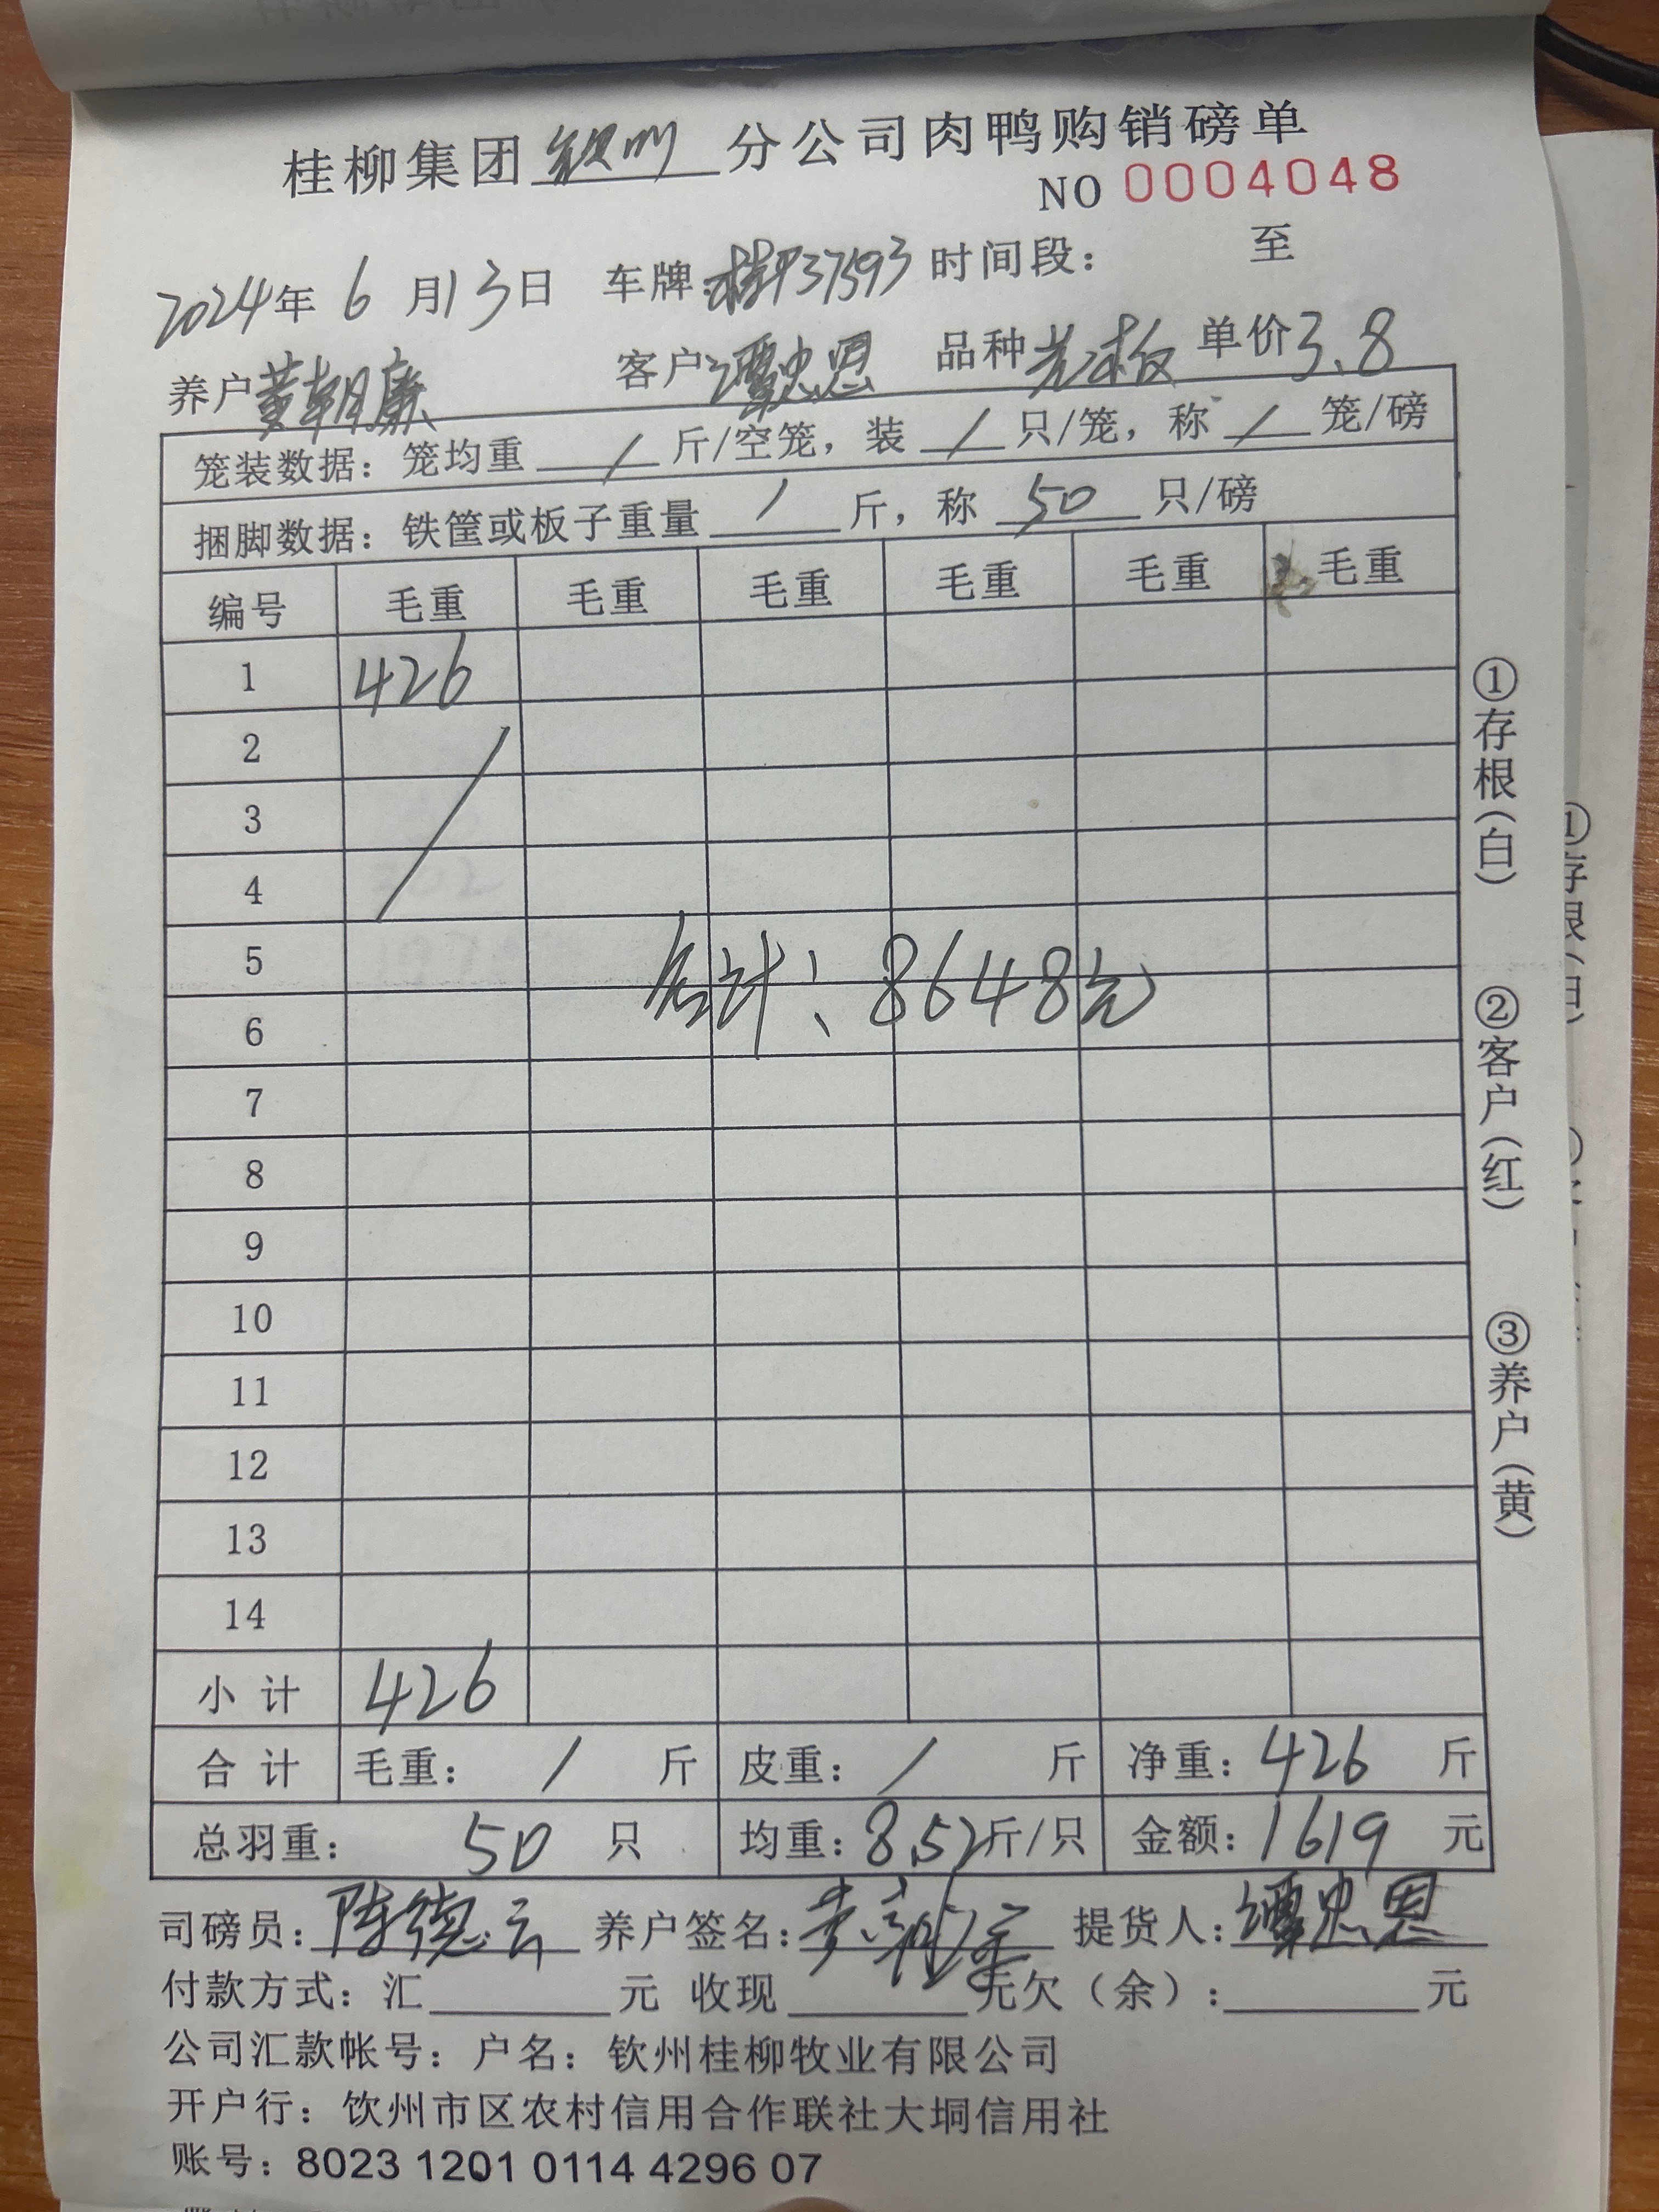 桂柳集团钦州分公司肉鸭购销磅单
NO 0004048
2024年6月13日 车牌:桂P37593 时间段: 至
养户黄朝廉 客户谭忠恩 品种 单价3.8
笼装数据:笼均重 / 斤/空笼,装 / 只/笼,称 / 笼/磅
捆脚数据:铁筐或板子重量 / 斤,称 50 只/磅
编号 毛重 毛重 毛重 毛重 毛重 毛重
1 426
2
3
4
5
合计:8648元
6
7
8
9
10
11
12
13
14
小计 426
合计 毛重: / 斤 皮重: / 斤 净重:426 斤
总羽重: 50 只 均重:8.52斤/只 金额:1619 元
司磅员:陈德云 养户签名: 提货人:谭忠恩
付款方式:汇 元 收现 元欠(余): 元
公司汇款帐号:户名:钦州桂柳牧业有限公司
开户行:饮州市区农村信用合作联社大垌信用社
账号:8023 1201 0114 4296 07
①存根(白)
②客户(红)
③养户(黄)